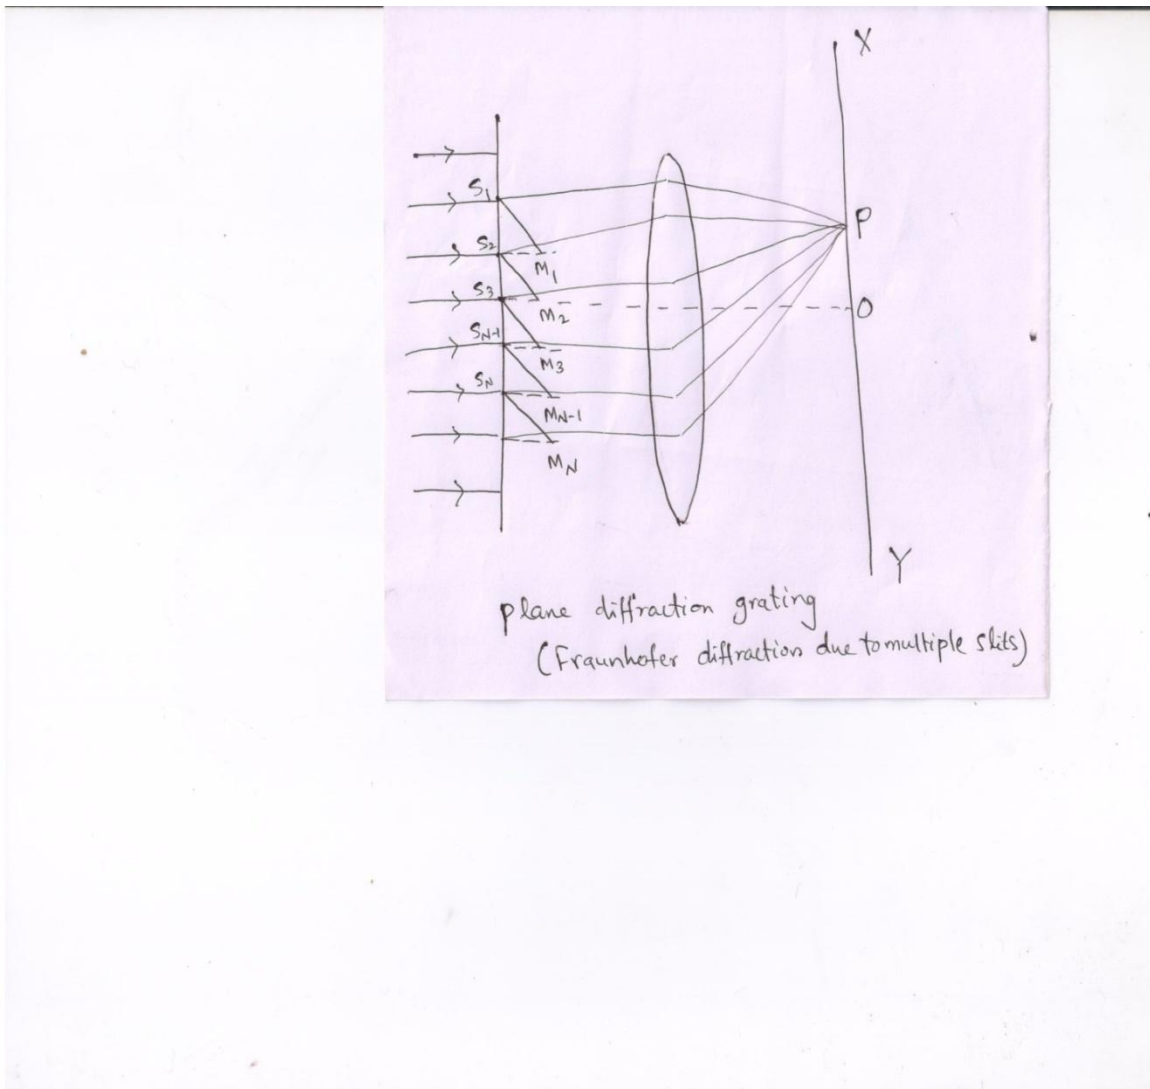 X
S1
P
S2
M1
S3
O
M2
SN-1
M3
SN
MN-1
MN
Y
plane diffraction grating
(Fraunhofer diffraction due to multiple slits)